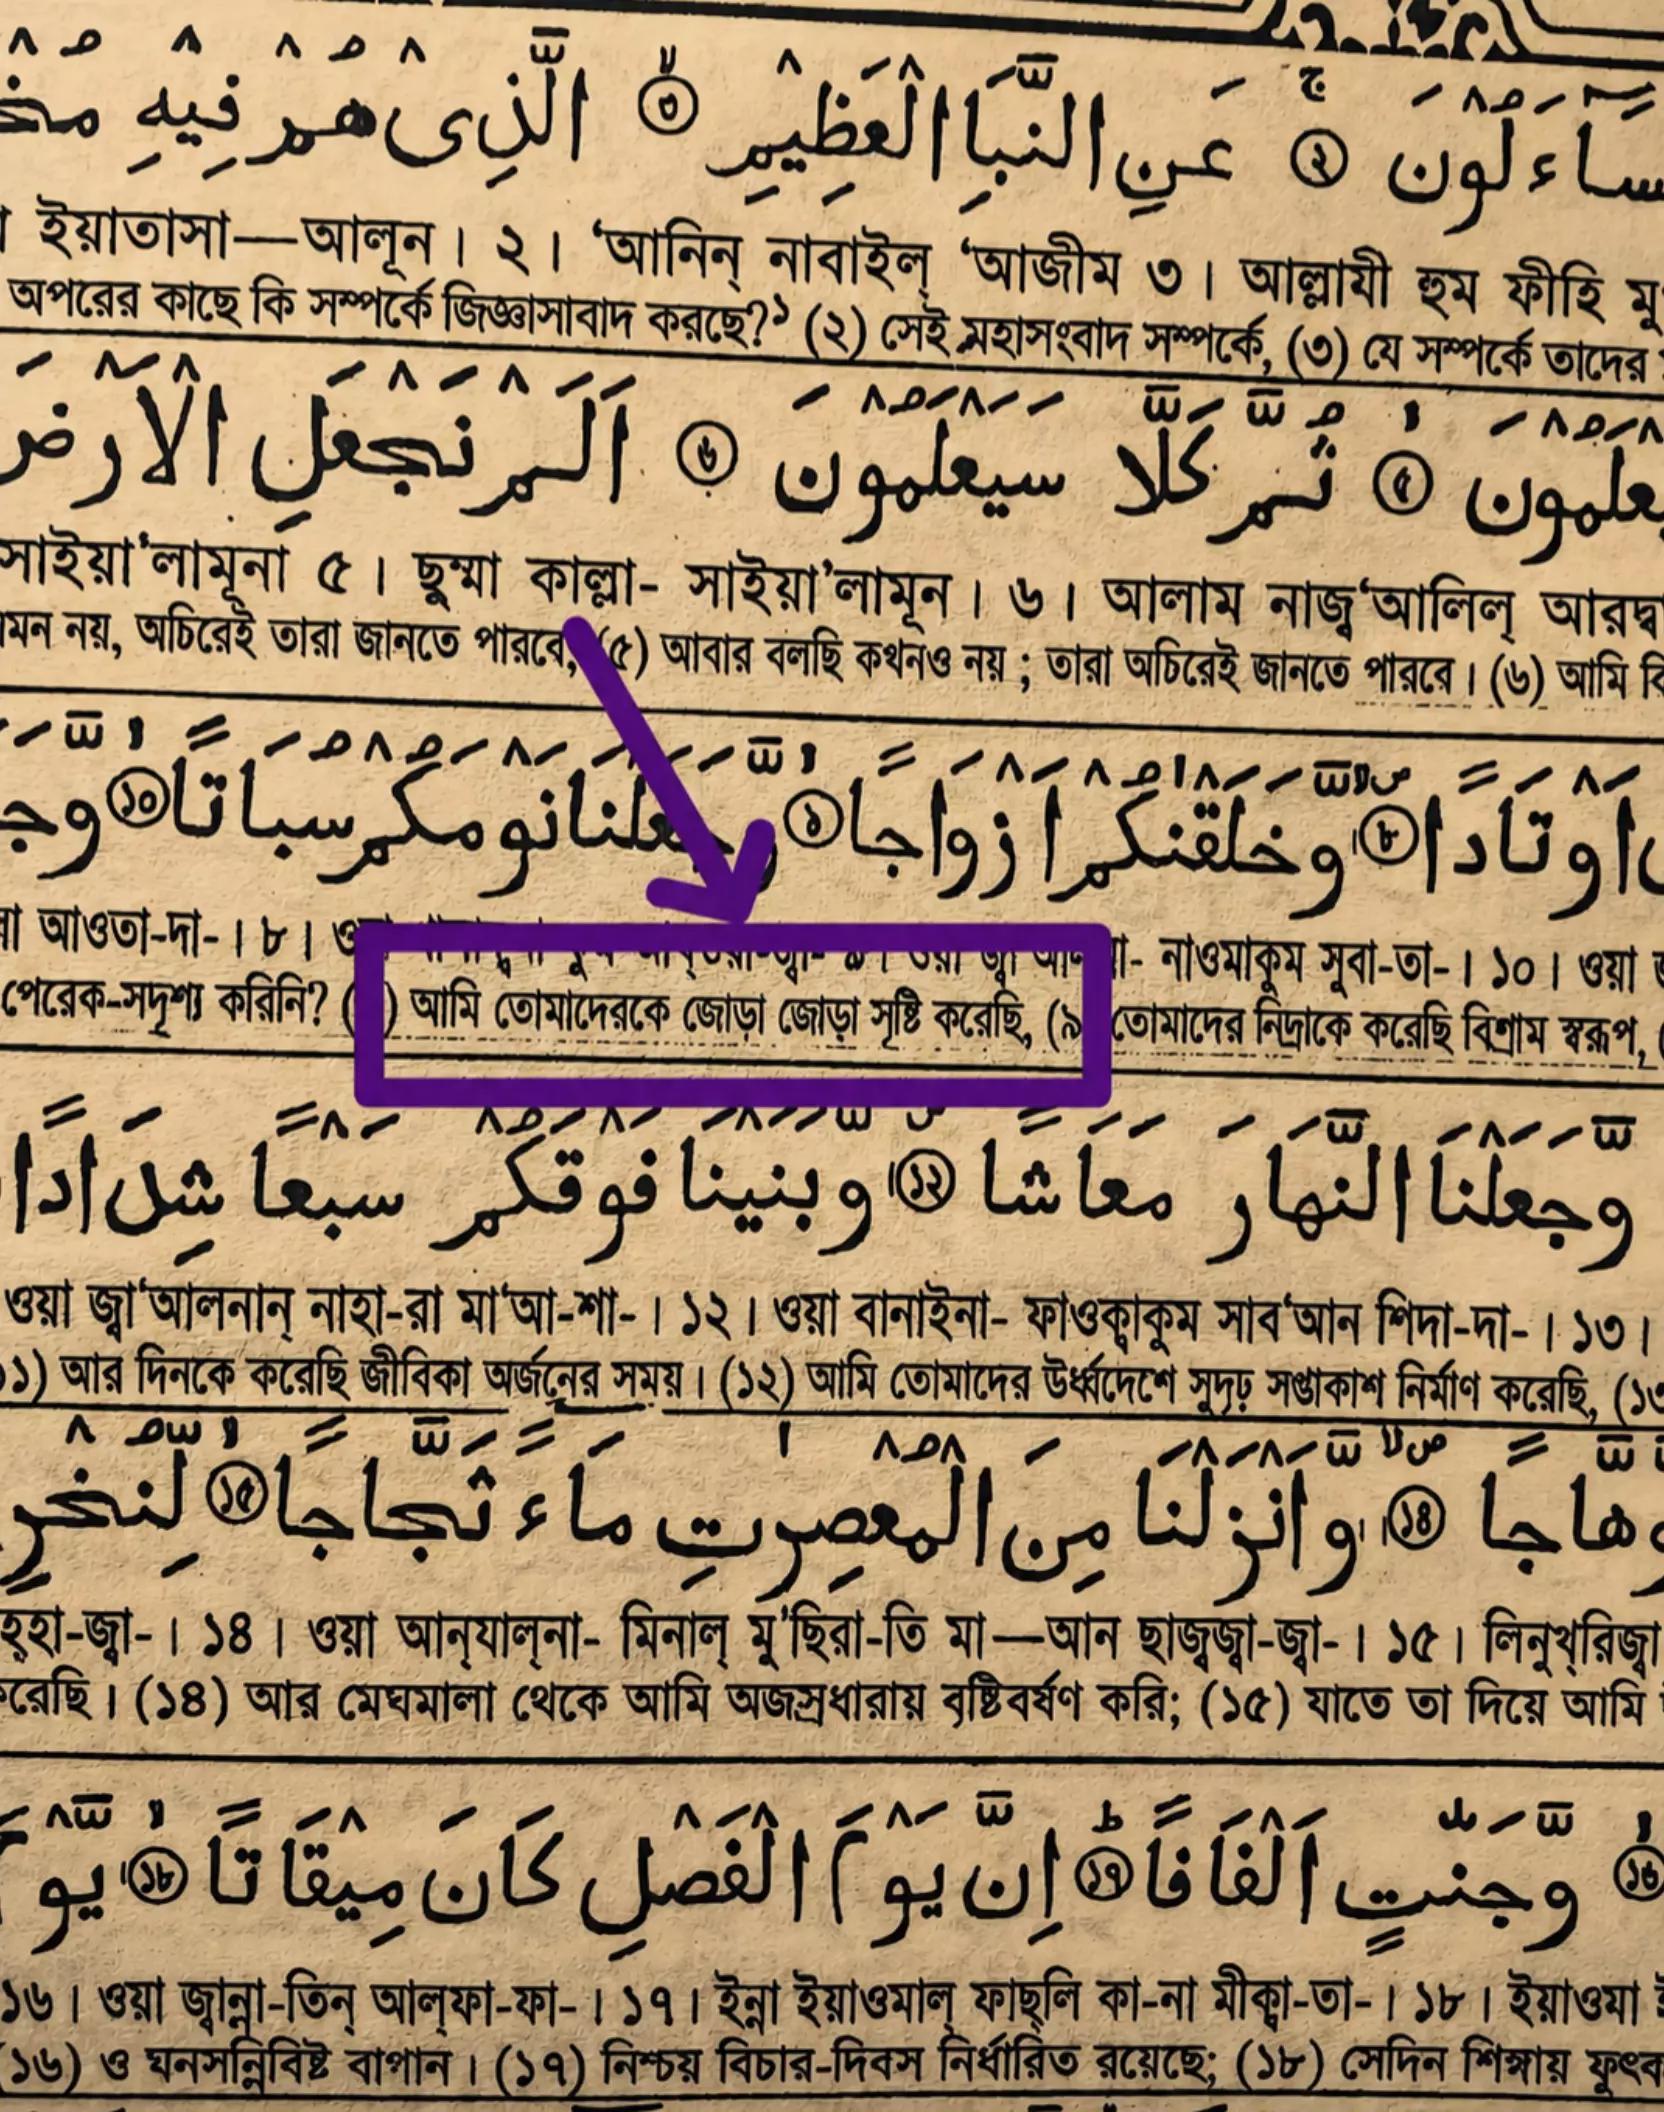 ساءلون ۝٢ عَنِ النَّبَاِ الْعَظِيْمِ ۝٣ الَّذِى هُمْ فِيْهِ
ইয়াতাসা—আলূন। ২। ‘আনিন্ নাবাইল্ ‘আজীম ৩। আল্লাযী হুম ফীহি
অপরের কাছে কি সম্পর্কে জিজ্ঞাসাবাদ করছে?১ (২) সেই মহাসংবাদ সম্পর্কে, (৩) যে সম্পর্কে তাদের
يعلمون ۝٥ ثُمَّ كَلَّا سَيَعْلَمُوْنَ ۝٦ اَلَمْ نَجْعَلِ الْاَرْضَ
সাইয়া’লামূনা ৫। ছুম্মা কাল্লা- সাইয়া’লামূন। ৬। আলাম নাজ্ব‘আলিল্ আরদ্বা
মন নয়, অচিরেই তারা জানতে পারবে, (৫) আবার বলছি কখনও নয়; তারা অচিরেই জানতে পারবে। (৬) আমি
اَوْتَادًا ۝٨ وَّخَلَقْنٰكُمْ اَزْوَاجًا ۝٩ وَّجَعَلْنَا نَوْمَكُمْ سُبَاتًا ۝١٠
আওতা-দা-। ৮। নাওমাকুম সুবা-তা-। ১০। ওয়া
পেরেক-সদৃশ্য করিনি? ( ) আমি তোমাদেরকে জোড়া জোড়া সৃষ্টি করেছি, (৯ তোমাদের নিদ্রাকে করেছি বিশ্রাম স্বরূপ,
وَّجَعَلْنَا النَّهَارَ مَعَاشًا ۝١٢ وَبَنَيْنَا فَوْقَكُمْ سَبْعًا شِدَادًا
ওয়া জ্বা‘আলনান্ নাহা-রা মা‘আ-শা-। ১২। ওয়া বানাইনা- ফাওক্বাকুম সাব‘আন শিদা-দা-। ১৩।
১১) আর দিনকে করেছি জীবিকা অর্জনের সময়। (১২) আমি তোমাদের উর্ধ্বদেশে সুদৃঢ় সপ্তাকাশ নির্মাণ করেছি,
وهاجًا ۝١٤ وَّاَنْزَلْنَا مِنَ الْمُعْصِرٰتِ مَآءً ثَجَّاجًا ۝١٥ لِّنُخْرِ
হ্হা-জ্বা-। ১৪। ওয়া আন্‌যাল্‌না- মিনাল্ মু’ছিরা-তি মা—আন ছাজ্বজ্বা-জ্বা-। ১৫। লিনুখ্‌রিজ্বা
করেছি। (১৪) আর মেঘমালা থেকে আমি অজস্রধারায় বৃষ্টিবর্ষণ করি; (১৫) যাতে তা দিয়ে আমি
۝١٦ وَّجَنّٰتٍ اَلْفَافًا ۝١٧ اِنَّ يَوْمَ الْفَصْلِ كَانَ مِيْقَاتًا ۝١٨ يَّوْ
১৬। ওয়া জ্বান্না-তিন্ আল্‌ফা-ফা-। ১৭। ইন্না ইয়াওমাল্ ফাছ্‌লি কা-না মীক্বা-তা-। ১৮। ইয়াওমা
(১৬) ও ঘনসন্নিবিষ্ট বাগান। (১৭) নিশ্চয় বিচার-দিবস নির্ধারিত রয়েছে; (১৮) সেদিন শিঙ্গায়